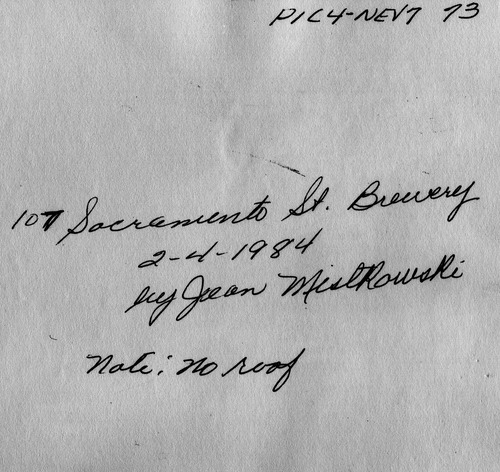 PIC4-NEV7 73
107 Sacramento St. Brewery
2-4-1984
by Jean Mistkowski
Note: no roof